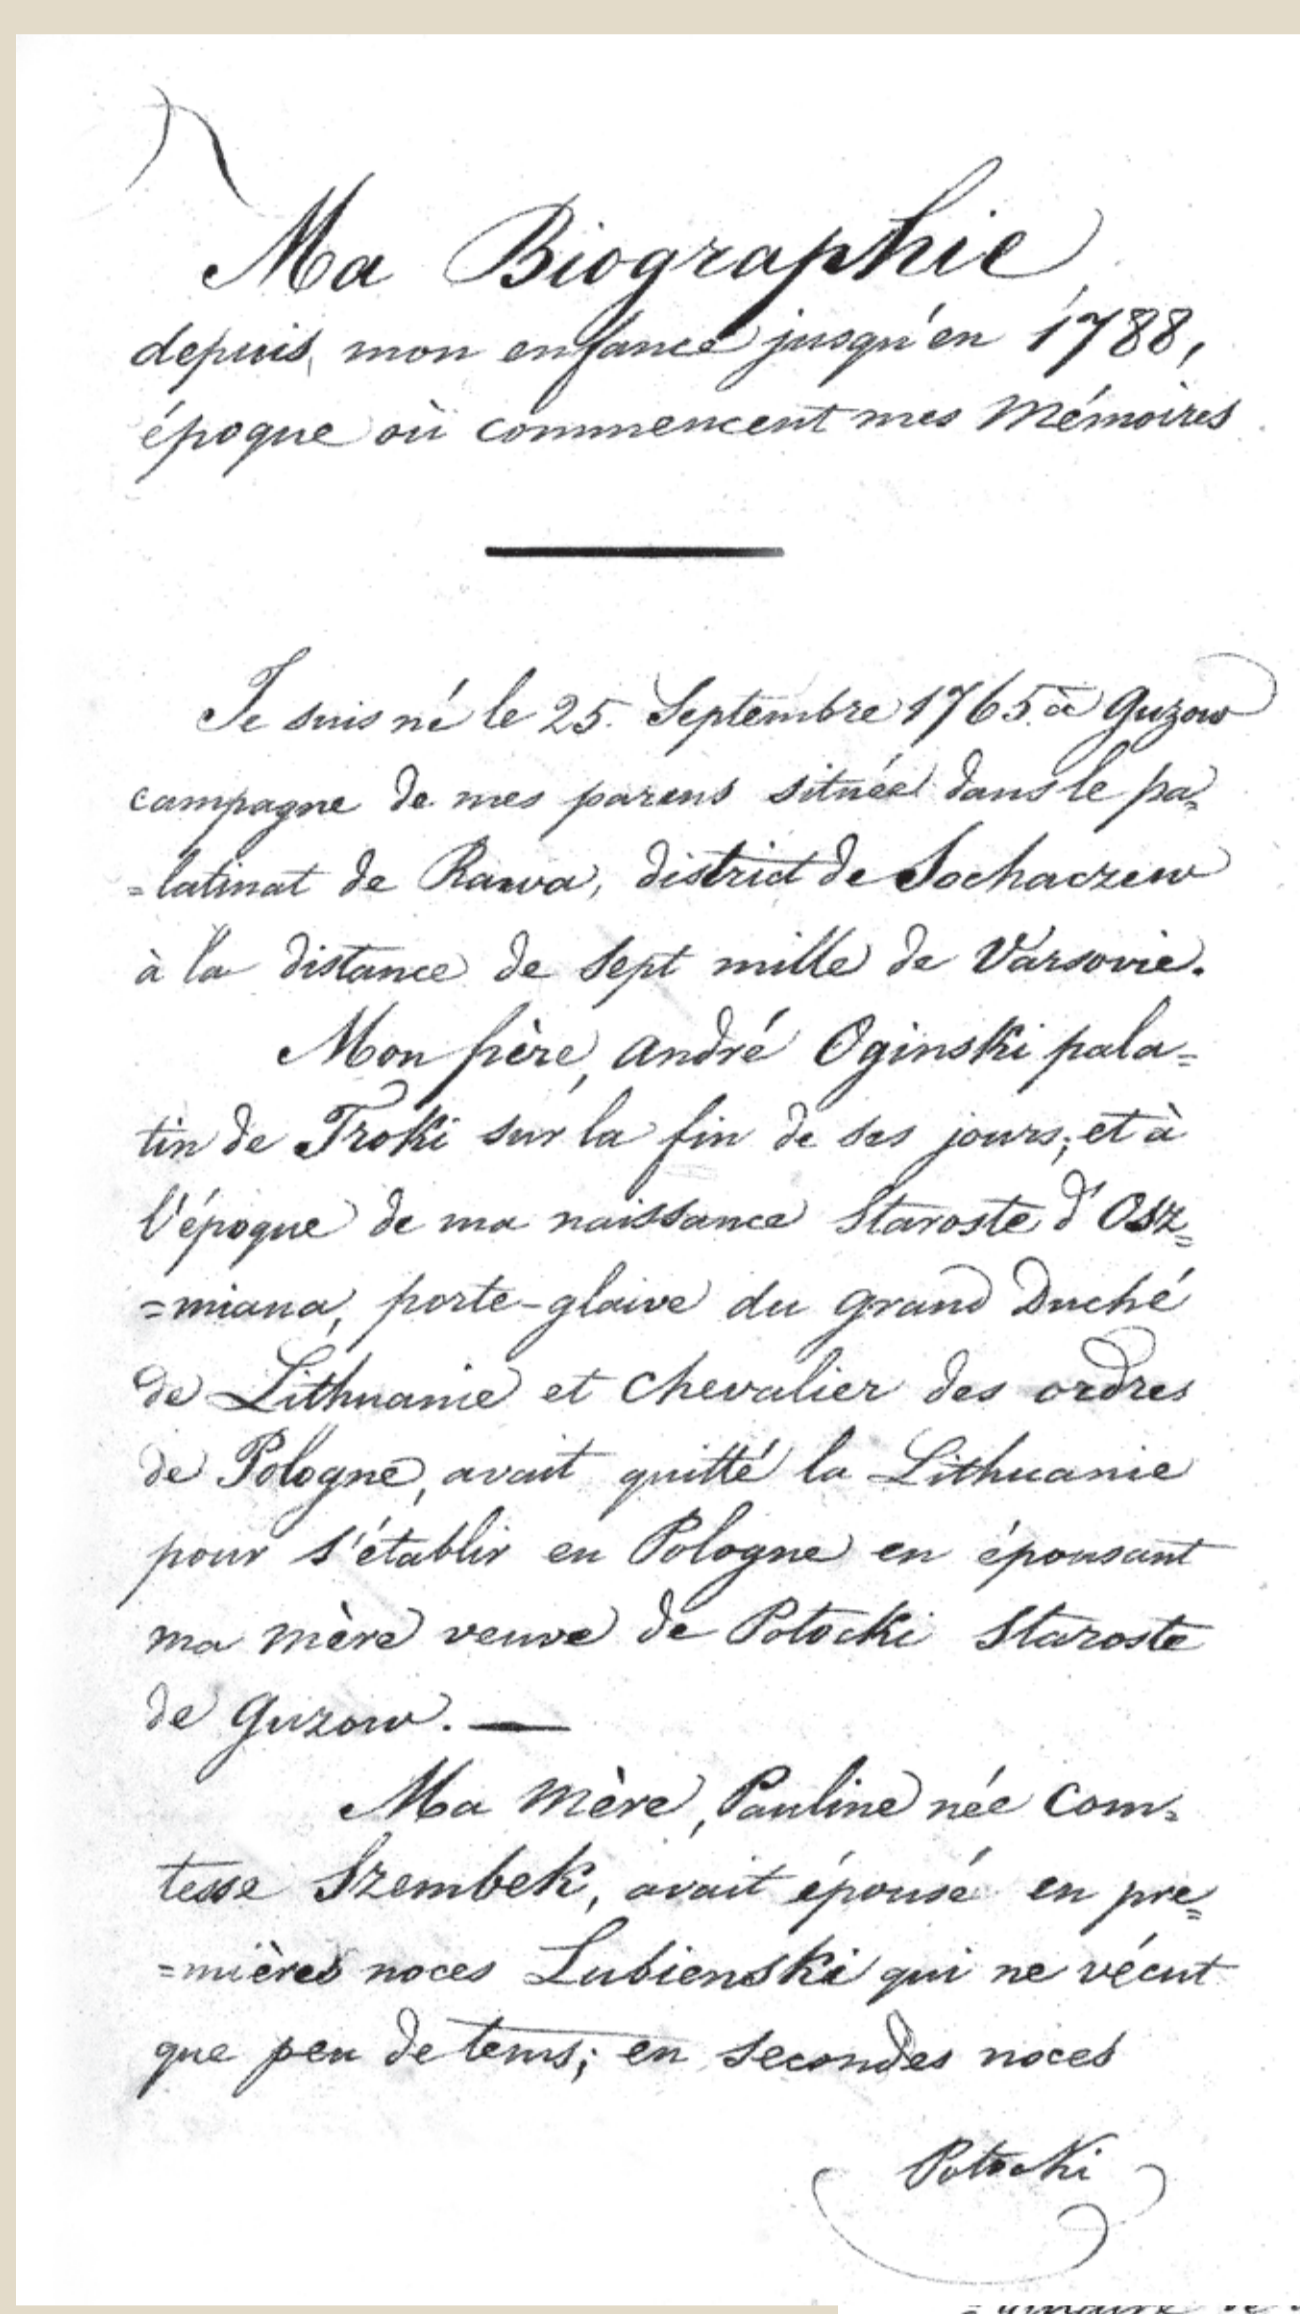 Ma Biographie
depuis mon enfance jusqu'en 1788,
époque où commencent mes Mémoires.
Je suis né le 25. Septembre 1765. à Guzow
campagne de mes parens située dans le pa=
=latinat de Rawa, district de Sochaczew
à la distance de sept mille de Varsovie.
Mon père, André Oginski pala=
tin de Troki sur la fin de ses jours; et à
l'époque de ma naissance Staroste d'Osz=
=miana, porte-glaive du grand Duché
de Lithuanie et Chevalier des ordres
de Pologne, avait quitté la Lithuanie
pour s'établir en Pologne en épousant
ma mère veuve de Potocki Staroste
de Guzow. —
Ma Mère, Pauline née Com=
tesse Szembek, avait épousé en pre=
=mières noces Lubienski qui ne vécut
que peu de tems; en secondes noces
Potocki